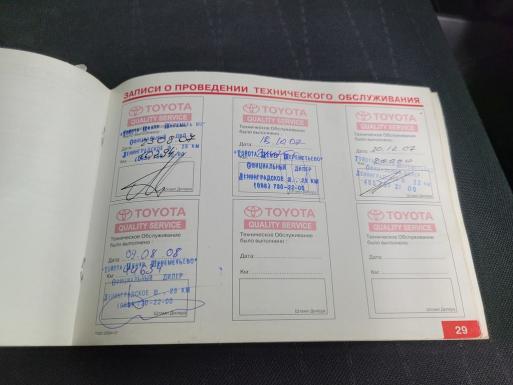 ЗАПИСИ О ПРОВЕДЕНИИ ТЕХНИЧЕСКОГО ОБСЛУЖИВАНИЯ
TOYOTA
QUALITY SERVICE
Техническое Обслуживание
было выполнено
Дата
Км
Штамп Дилера
TOYOTA
QUALITY SERVICE
Техническое Обслуживание
было выполнено
15.10.07
"Тойота Центр Шереметьево"
Официальный дилер
Ленинградское ш., 25 км
(095) 730-22-00
Штамп Дилера
TOYOTA
QUALITY SERVICE
Техническое Обслуживание
было выполнено
Дата 20.12.07
Км
Штамп Дилера
TOYOTA
QUALITY SERVICE
Техническое Обслуживание
было выполнено
Дата 09.08.08
"Тойота Центр Шереметьево"
Км
Официальный дилер
Ленинградское ш., 25 км
Штамп Дилера
TOYOTA
QUALITY SERVICE
Техническое Обслуживание
было выполнено
Дата
Км
Штамп Дилера
TOYOTA
QUALITY SERVICE
Техническое Обслуживание
было выполнено
Дата
Км
Штамп Дилера
29